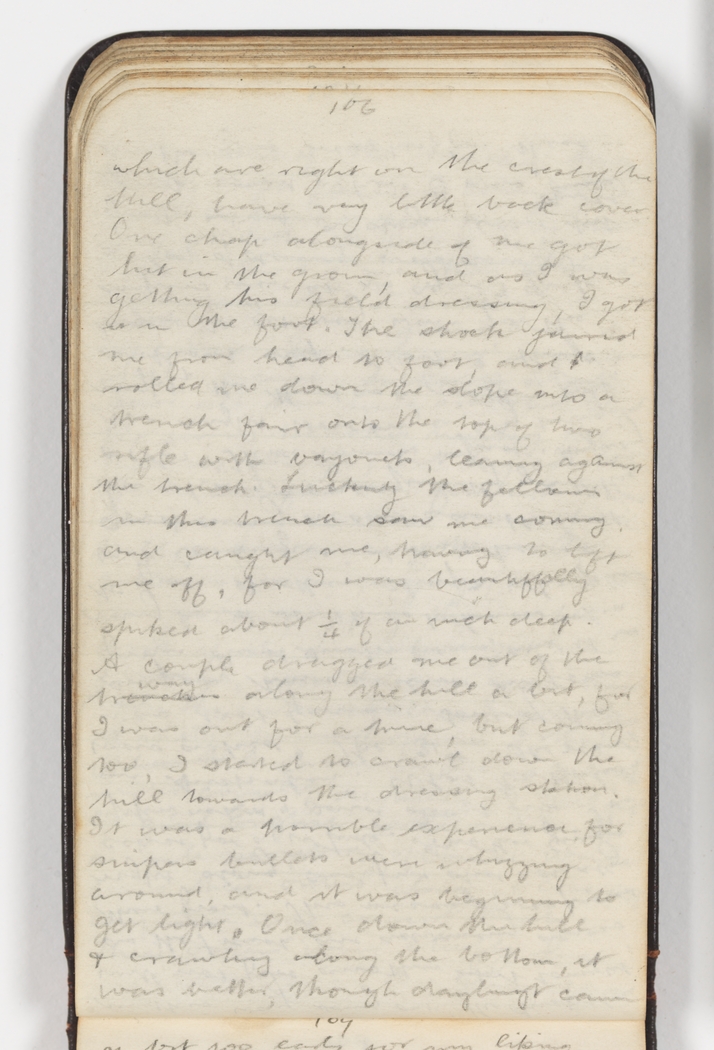 106
which are right on the crest of the
hill, have very little back cover.
One chap alongside of me got
hit in the groin, and as I was
getting his field dressing, I got
in the foot. The shock jarred
me from head to foot, and
rolled me down the slope into a
trench fair onto the top of two
rifle with bayonets, leaning against
the trench. Luckily the fellows
in this trench saw me coming,
and caught me, having to lift
me off, for I was beautifully
spiked about 1/4 of an inch deep.
A couple dragged me out of the
way
trenches along the hill a bit, for
I was out for a time, but coming
too, I started to crawl down the
hill towards the dressing station.
It was a horrible experience, for
snipers bullets were whizzing
around, and it was beginning to
get light. Once down the hill
& crawling along the bottom, it
was better, though daylight came
107
a bit too early for my liking